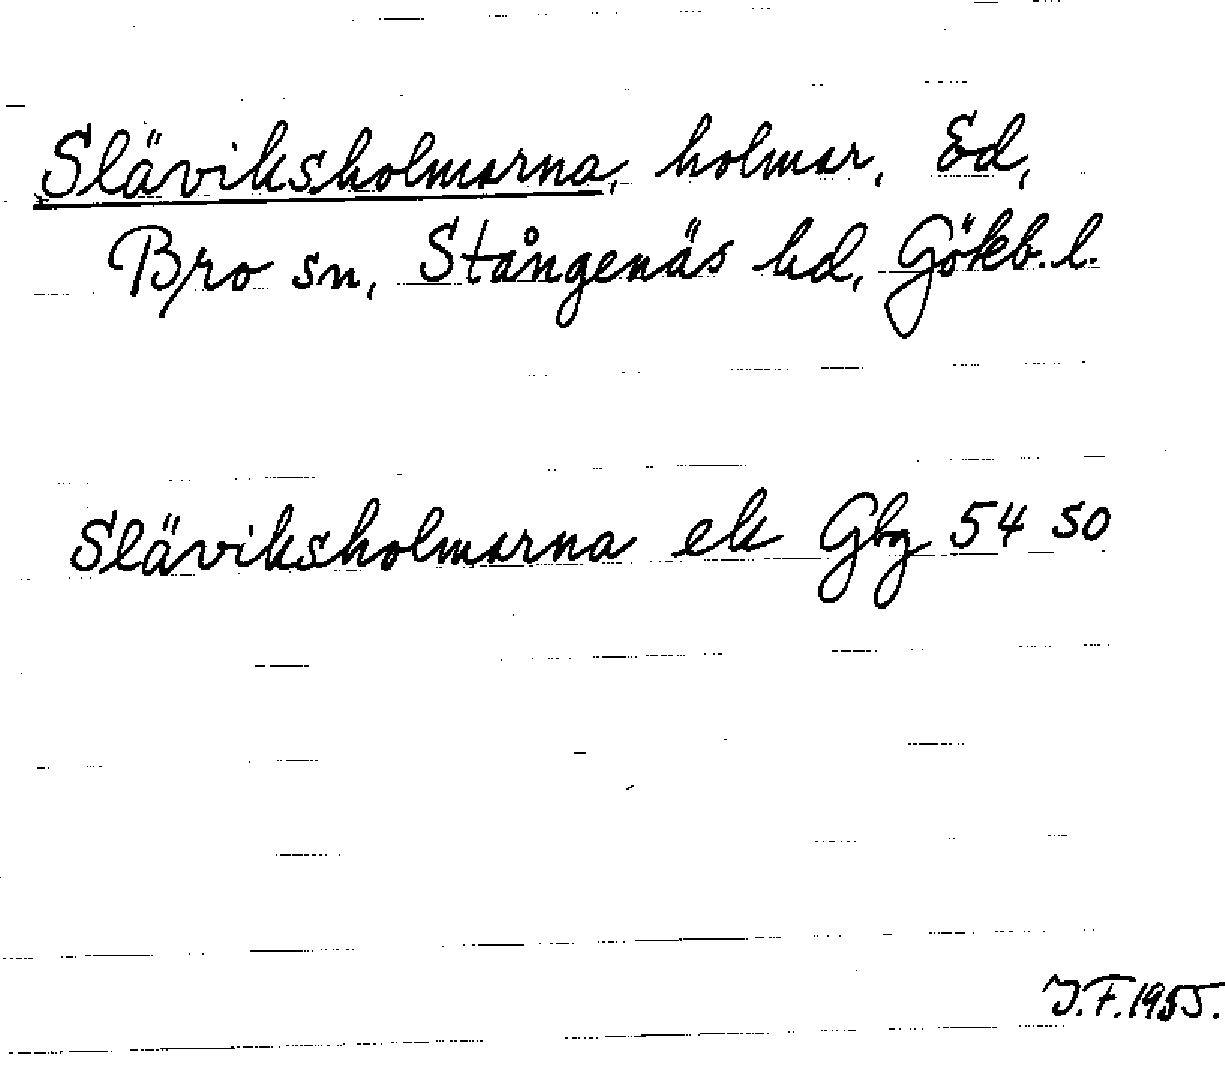 Släviksholmarna, holmar, Ed,
Bro sn, Stångenäs hd, Gökb. l.
Släviksholmarna ek Gbg 54 50
J.F. 1955.